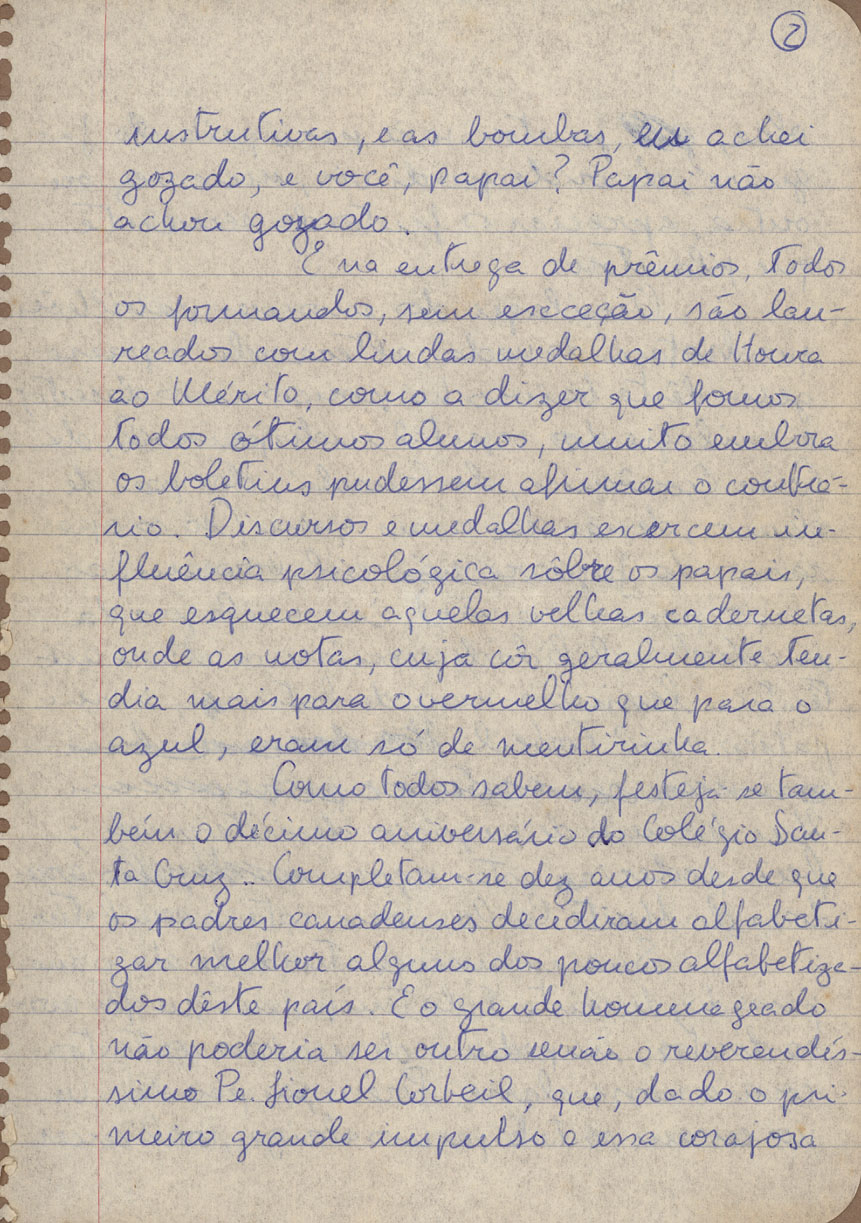 2
instrutivas, e as bombas, eu achei
gozado, e você, papai? Papai não
achou gozado.
E na entrega de prêmios, todos
os formandos, sem excceção, são lau-
reados com lindas medalhas de Honra
ao Mérito, como a dizer que fomos
todos ótimos alunos, muito embora
os boletins pudessem afirmar o contrá-
rio. Discursos e medalhas exercem in-
fluência psicológica sôbre os papais,
que esquecem aquelas velhas cadernetas,
onde as notas, cuja côr geralmente ten-
dia mais para o vermelho que para o
azul, eram só de mentirinha.
Como todos sabem, festeja-se tam-
bém o décimo aniversário do Colégio San-
ta Cruz.. Completam-se dez anos desde que
os padres canadenses decidiram alfabeti-
zar melhor alguns dos poucos alfabetiza-
dos dêste país. E o grande homenageado
não poderia ser outro senão o reverendís-
simo Pe. Lionel Corbeil, que, dado o pri-
meiro grande impulso a essa corajosa